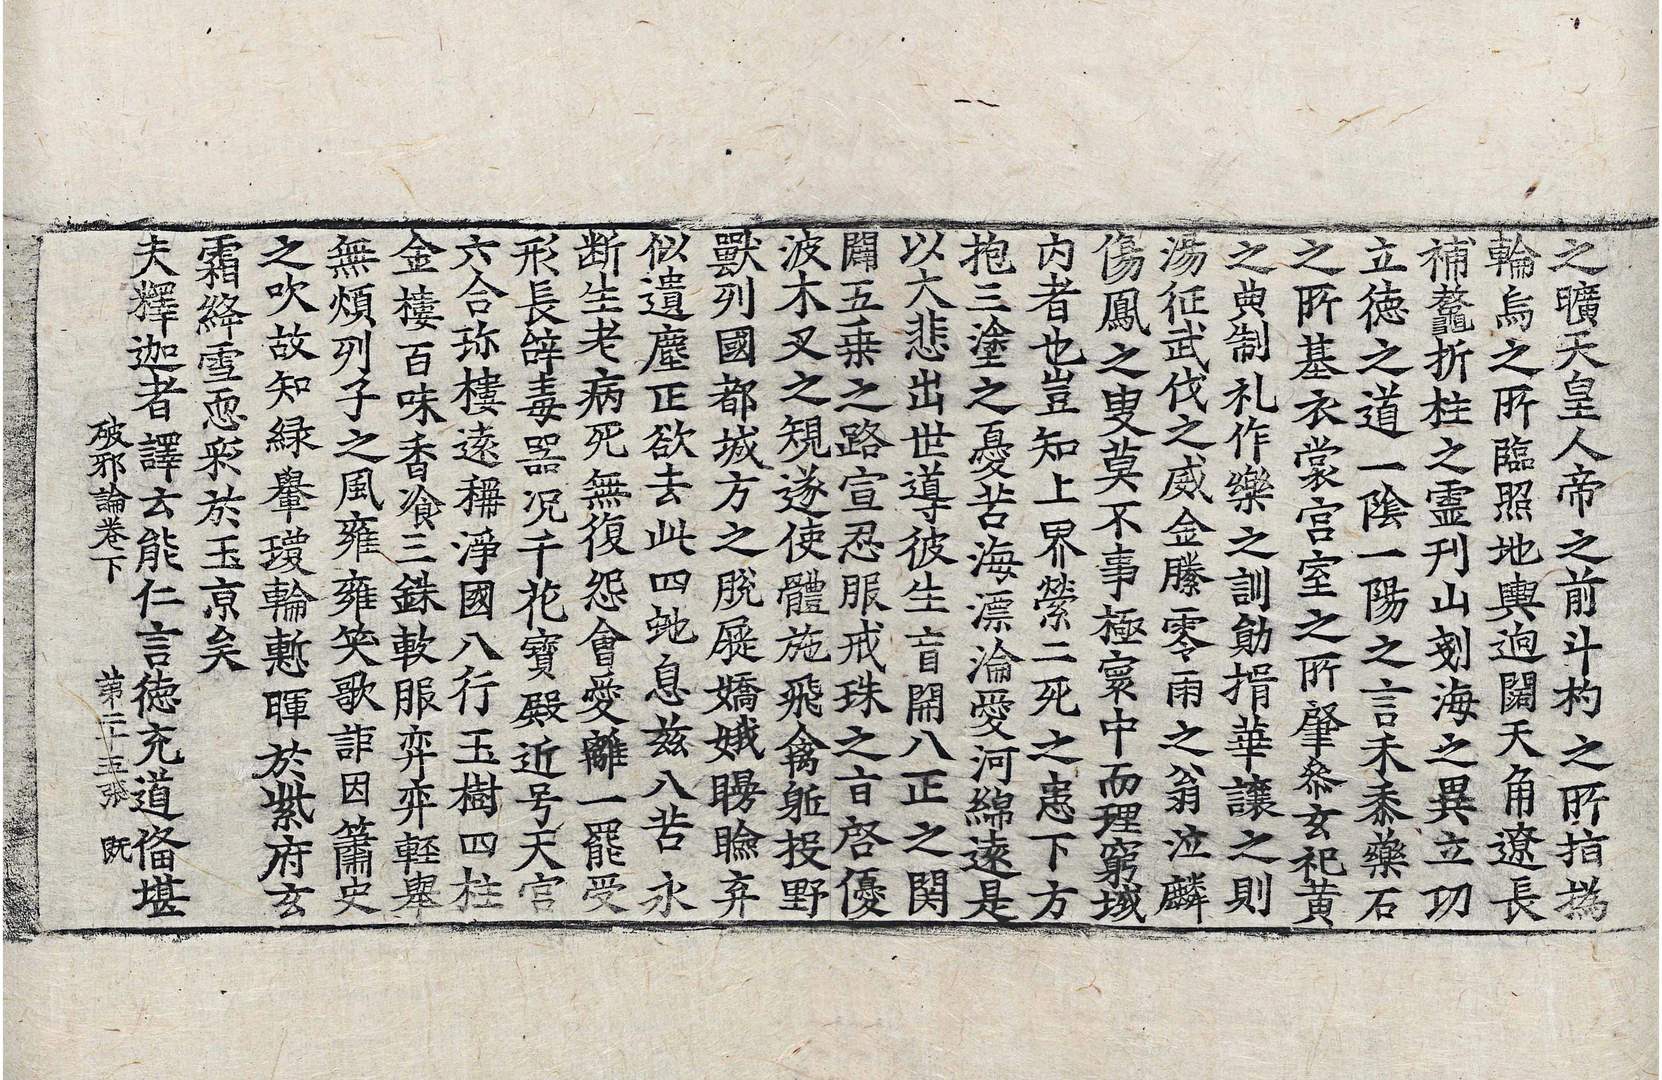 之曠天皇人帝之前斗杓之所指撝
輪烏之所臨照地輿逈闊天角遼長
補鼇折柱之靈刋山刻海之異立功
立徳之道一隂一陽之言禾黍藥石
之所基衣裳宫室之所肇叅玄祀黄
之典制礼作樂之訓勛揖華讓之則
湯征武伐之威金縢零雨之翁泣麟
傷鳳之叟莫不事極寰中而理窮域
内者也豈知上界縈二死之恚下方
抱三塗之憂苦海漂淪愛河綿逺是
以大悲出世導彼生盲開八正之関
闢五乗之路宣忍服戒珠之㫖啓優
波木叉之規遂使體施飛禽躯投野
獸列國都城方之脫屣嬌娥曼瞼弃
似遺塵正欲去此四虵息兹八苦永
断生老病死無復怨會愛離一罷受
形長辝毒器况千花寶殿近号天宫
六合珎樓遠稱淨國八行玉樹四柱
金樓百味香飡三銖軟服弈弈輕舉
無煩列子之風雍雍笑歌詎因簫史
之吹故知緑轝瓊輪慙暉於紫府玄
霜絳雪恧彩於玉亰矣
夫釋迦者譯云能仁言徳充道俻堪
破邪論卷下 第二十五張 既